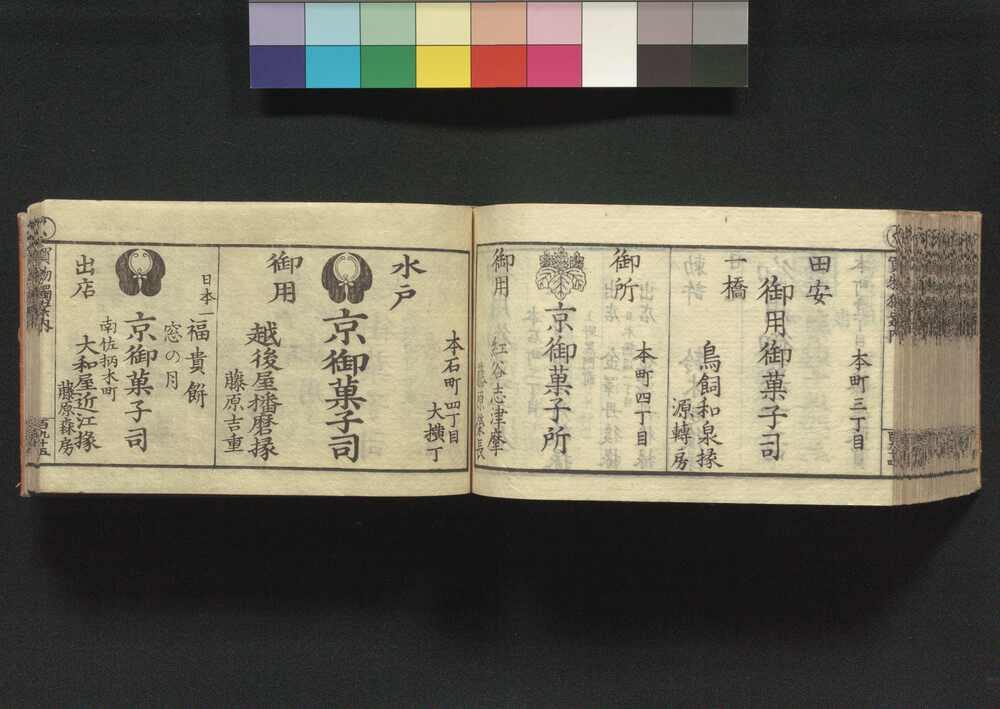 本町三丁目
田安
御用御菓子司
一橋
鳥飼和泉掾
源轉房
本町四丁目
御所
京御菓子所
御用
紅谷志津摩
本石町四丁目
大横丁
水戸
京御菓子司
御用
越後屋播磨掾
藤原吉重
日本一
福貴餅
窓の月
京御菓子司
南佐柄木町
出店
大和屋近江掾
藤原森房
買物獨案内
百九十五